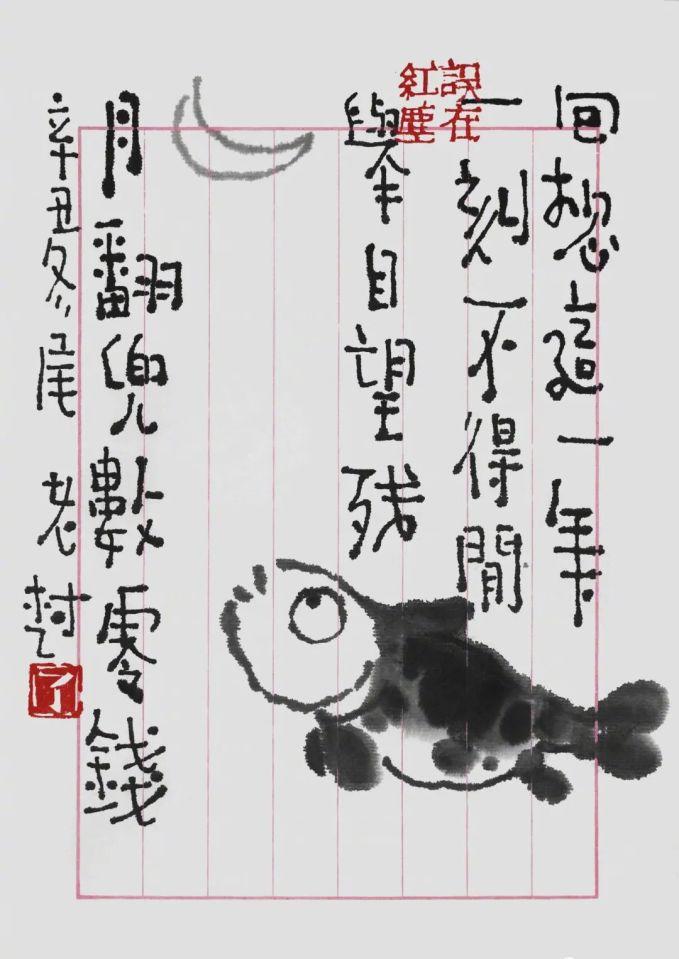 回想這一年
一刻不得閒
誤在
紅塵
舉目望残
月翻兜數零錢
辛丑冬尾 老
了